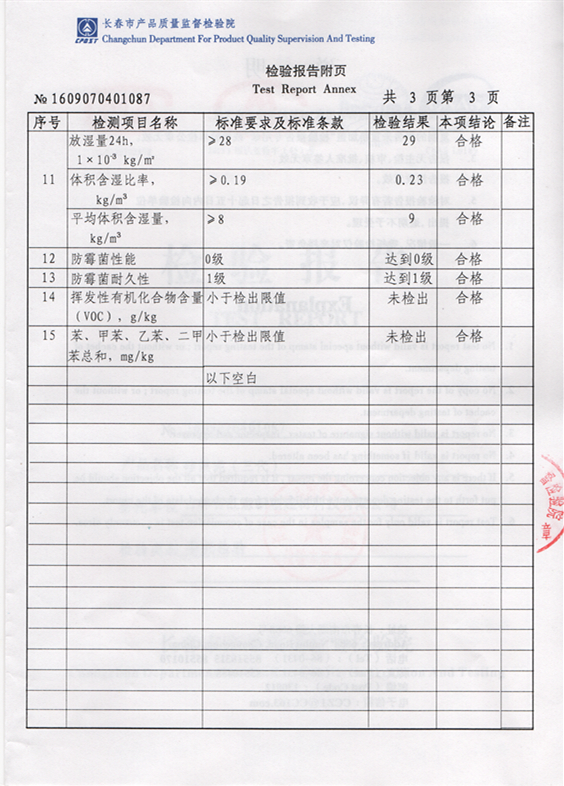 长春市产品质量监督检验院
CPQST Changchun Department For Product Quality Supervision And Testing
检验报告附页
Test Report Annex
№ 1609070401087 共 3 页第 3 页
序号 检测项目名称 标准要求及标准条款 检验结果 本项结论 备注
放湿量24h, ≥28 29 合格
1×10⁻³ kg/m²
11 体积含湿比率, ≥0.19 0.23 合格
kg/m³
平均体积含湿量, ≥8 9 合格
kg/m³
12 防霉菌性能 0级 达到0级 合格
13 防霉菌耐久性 1级 达到1级 合格
14 挥发性有机化合物含量 小于检出限值 未检出 合格
（VOC）, g/kg
15 苯、甲苯、乙苯、二甲 小于检出限值 未检出 合格
苯总和, mg/kg
以下空白